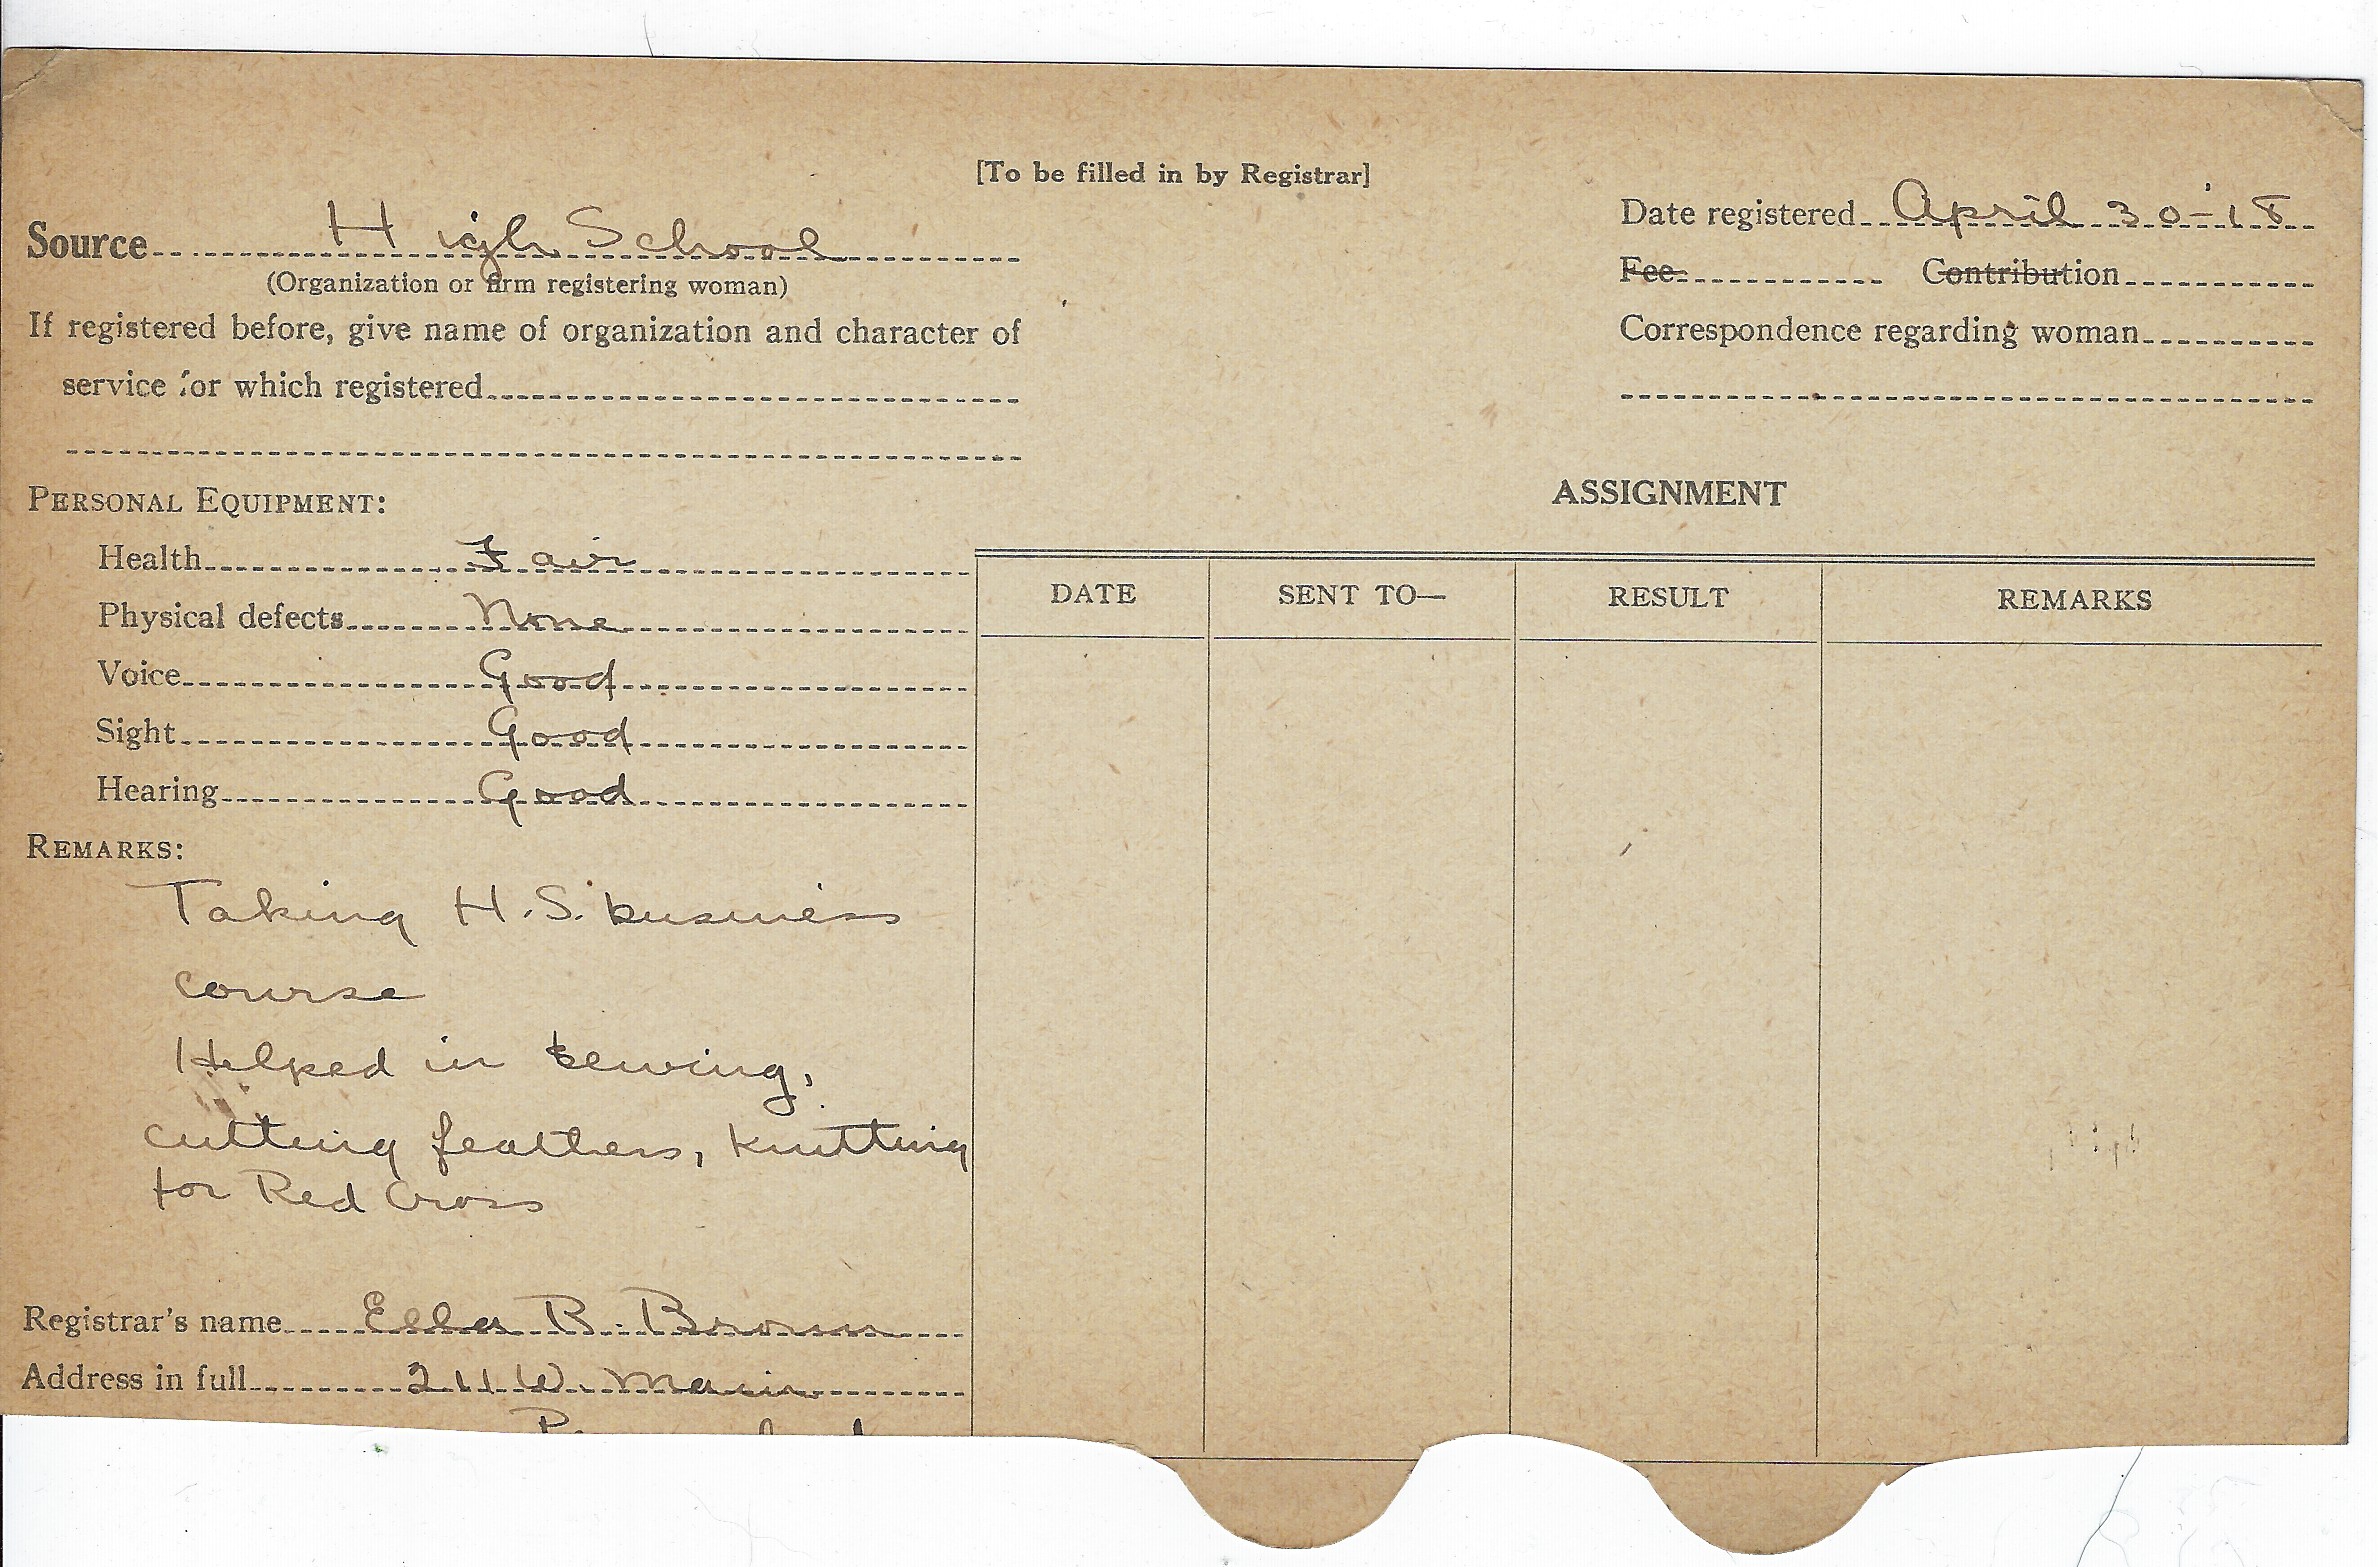 [To be filled in by Registrar]
Source High School
(Organization or firm registering woman)
If registered before, give name of organization and character of
service for which registered
PERSONAL EQUIPMENT:
Health Fair
Physical defects None
Voice Good
Sight Good
Hearing Good
REMARKS:
Taking H.S. business
course
Helped in sewing,
cutting feathers, knitting
for Red Cross
Registrar's name Ella B. Brown
Address in full 211 W. Main
Date registered April 30-18
Fee Contribution
Correspondence regarding woman
ASSIGNMENT
DATE SENT TO— RESULT REMARKS